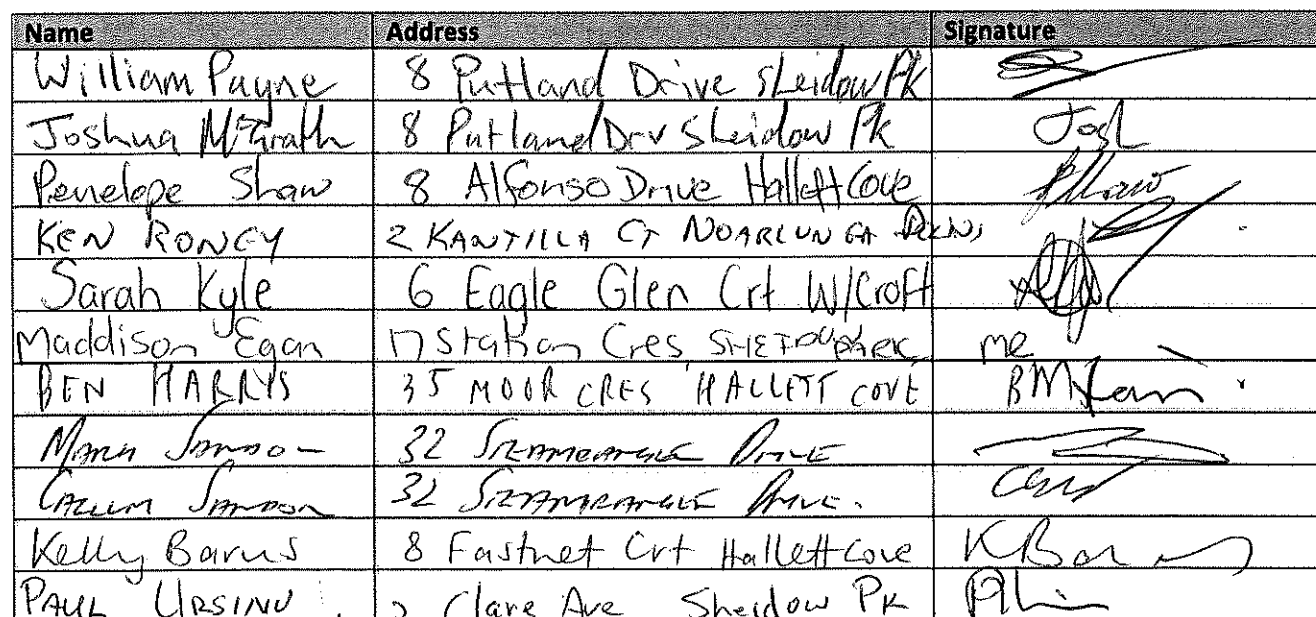 Name Address Signature
William Payne 8 Putland Drive Sheidow Pk
Joshua McGrath 8 Putland Drv Sheidow Pk Josh
Penelope Shaw 8 Alfonso Drive Hallett Cove PShaw
KEN RONEY 2 KANTILLA CT NOARLUNGA
Sarah Kyle 6 Eagle Glen Crt W/Croft
Maddison Egan 17 Station Cres me
BEN HARRIS 35 MOOR CRES HALLETT COVE
MARK 32 DRIVE
CALLUM 32 DRIVE.
Kelly Barns 8 Fastnet Crt Hallett Cove
PAUL Clare Ave Sheidow PK